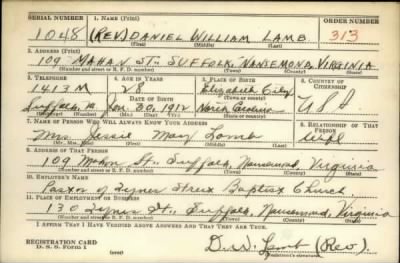 SERIAL NUMBER 1. NAME (Print) ORDER NUMBER
1048 (REV) DANIEL WILLIAM LAMB 313
(First) (Middle) (Last)
2. ADDRESS (Print)
109 MAHAN ST. SUFFOLK, NANSEMOND, VIRGINIA
(Number and street or R. F. D. number) (Town) (County) (State)
3. TELEPHONE 4. AGE IN YEARS 5. PLACE OF BIRTH 6. COUNTRY OF CITIZENSHIP
1413 M 28 Elizabeth City
DATE OF BIRTH (Town or county)
Suffolk, Va. Jan. 30, 1912 North Carolina U S A
(Exchange) (Number) (Mo.) (Day) (Yr.) (State or country)
7. NAME OF PERSON WHO WILL ALWAYS KNOW YOUR ADDRESS 8. RELATIONSHIP OF THAT PERSON
Mrs Jessie May Lamb Wife
(Mr., Mrs., Miss) (First) (Middle) (Last)
9. ADDRESS OF THAT PERSON
109 Mahan St., Suffolk, Nansemond, Virginia
(Number and street or R. F. D. number) (Town) (County) (State)
10. EMPLOYER'S NAME
Pastor of Street Baptist Church
11. PLACE OF EMPLOYMENT OR BUSINESS
130 St., Suffolk, Nansemond, Virginia
(Number and street or R. F. D. number) (Town) (County) (State)
I AFFIRM THAT I HAVE VERIFIED ABOVE ANSWERS AND THAT THEY ARE TRUE.
REGISTRATION CARD
D. S. S. Form 1 (over) D. W. Lamb (Rev)
(Registrant's signature)